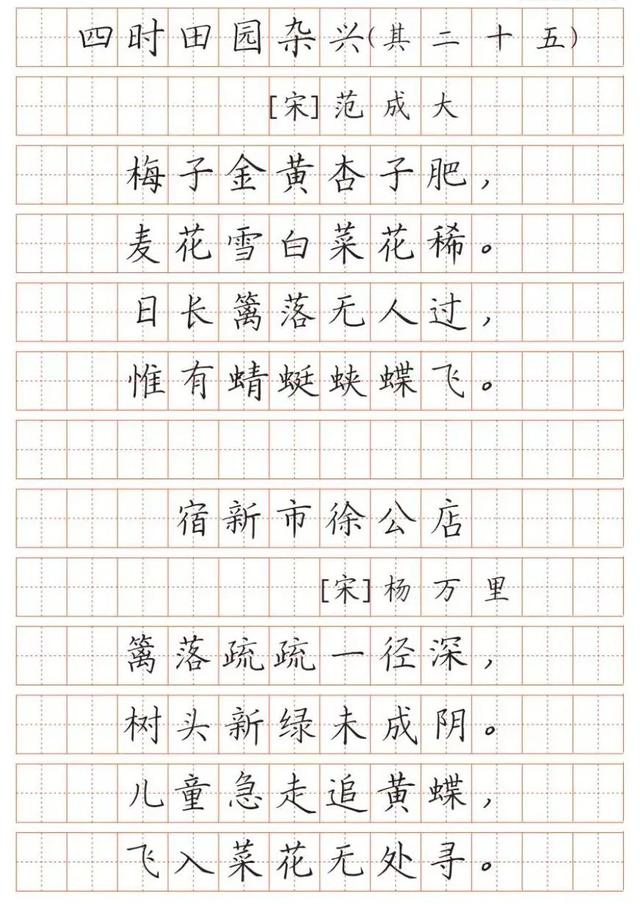 四时田园杂兴(其二十五)
[宋]范成大
梅子金黄杏子肥，
麦花雪白菜花稀。
日长篱落无人过，
惟有蜻蜓蛱蝶飞。
宿新市徐公店
[宋]杨万里
篱落疏疏一径深，
树头新绿未成阴。
儿童急走追黄蝶，
飞入菜花无处寻。